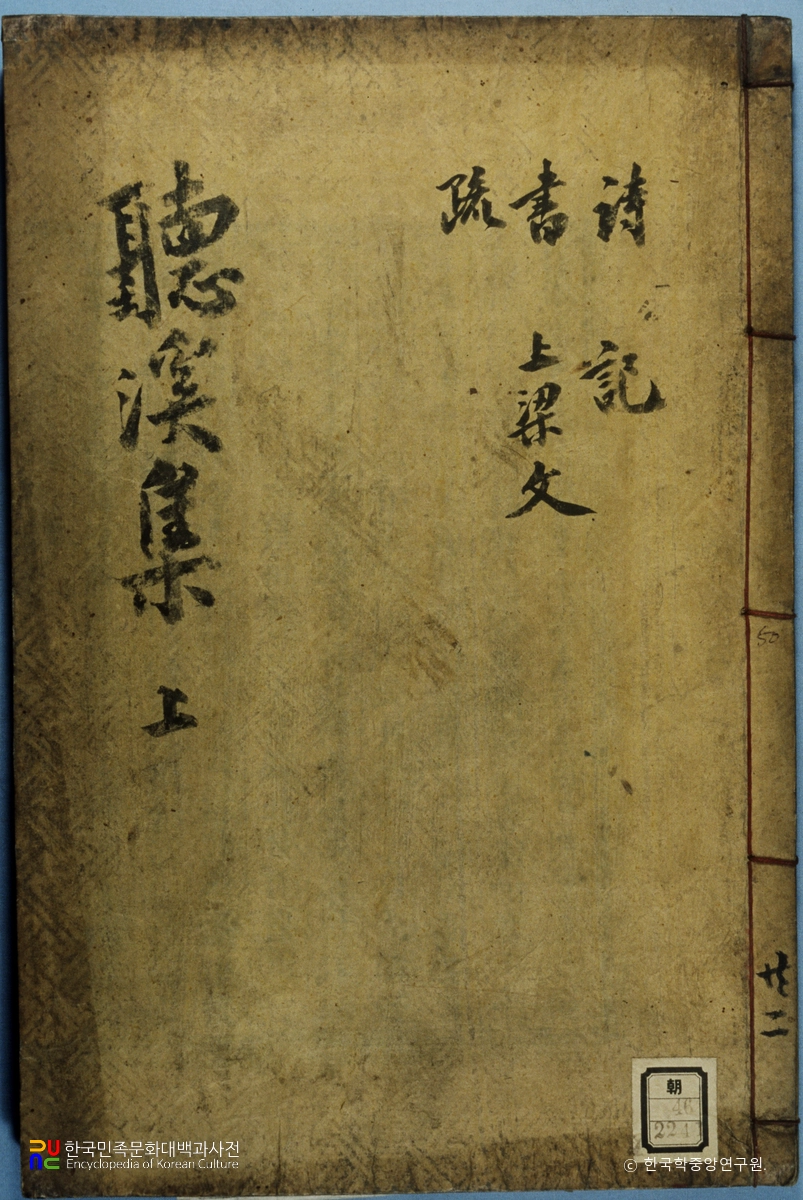 聽溪集 上
詩 記
書 上梁文
疏
50
共二
朝
46
221
한국민족문화대백과사전
Encyclopedia of Korean Culture
© 한국학중앙연구원.